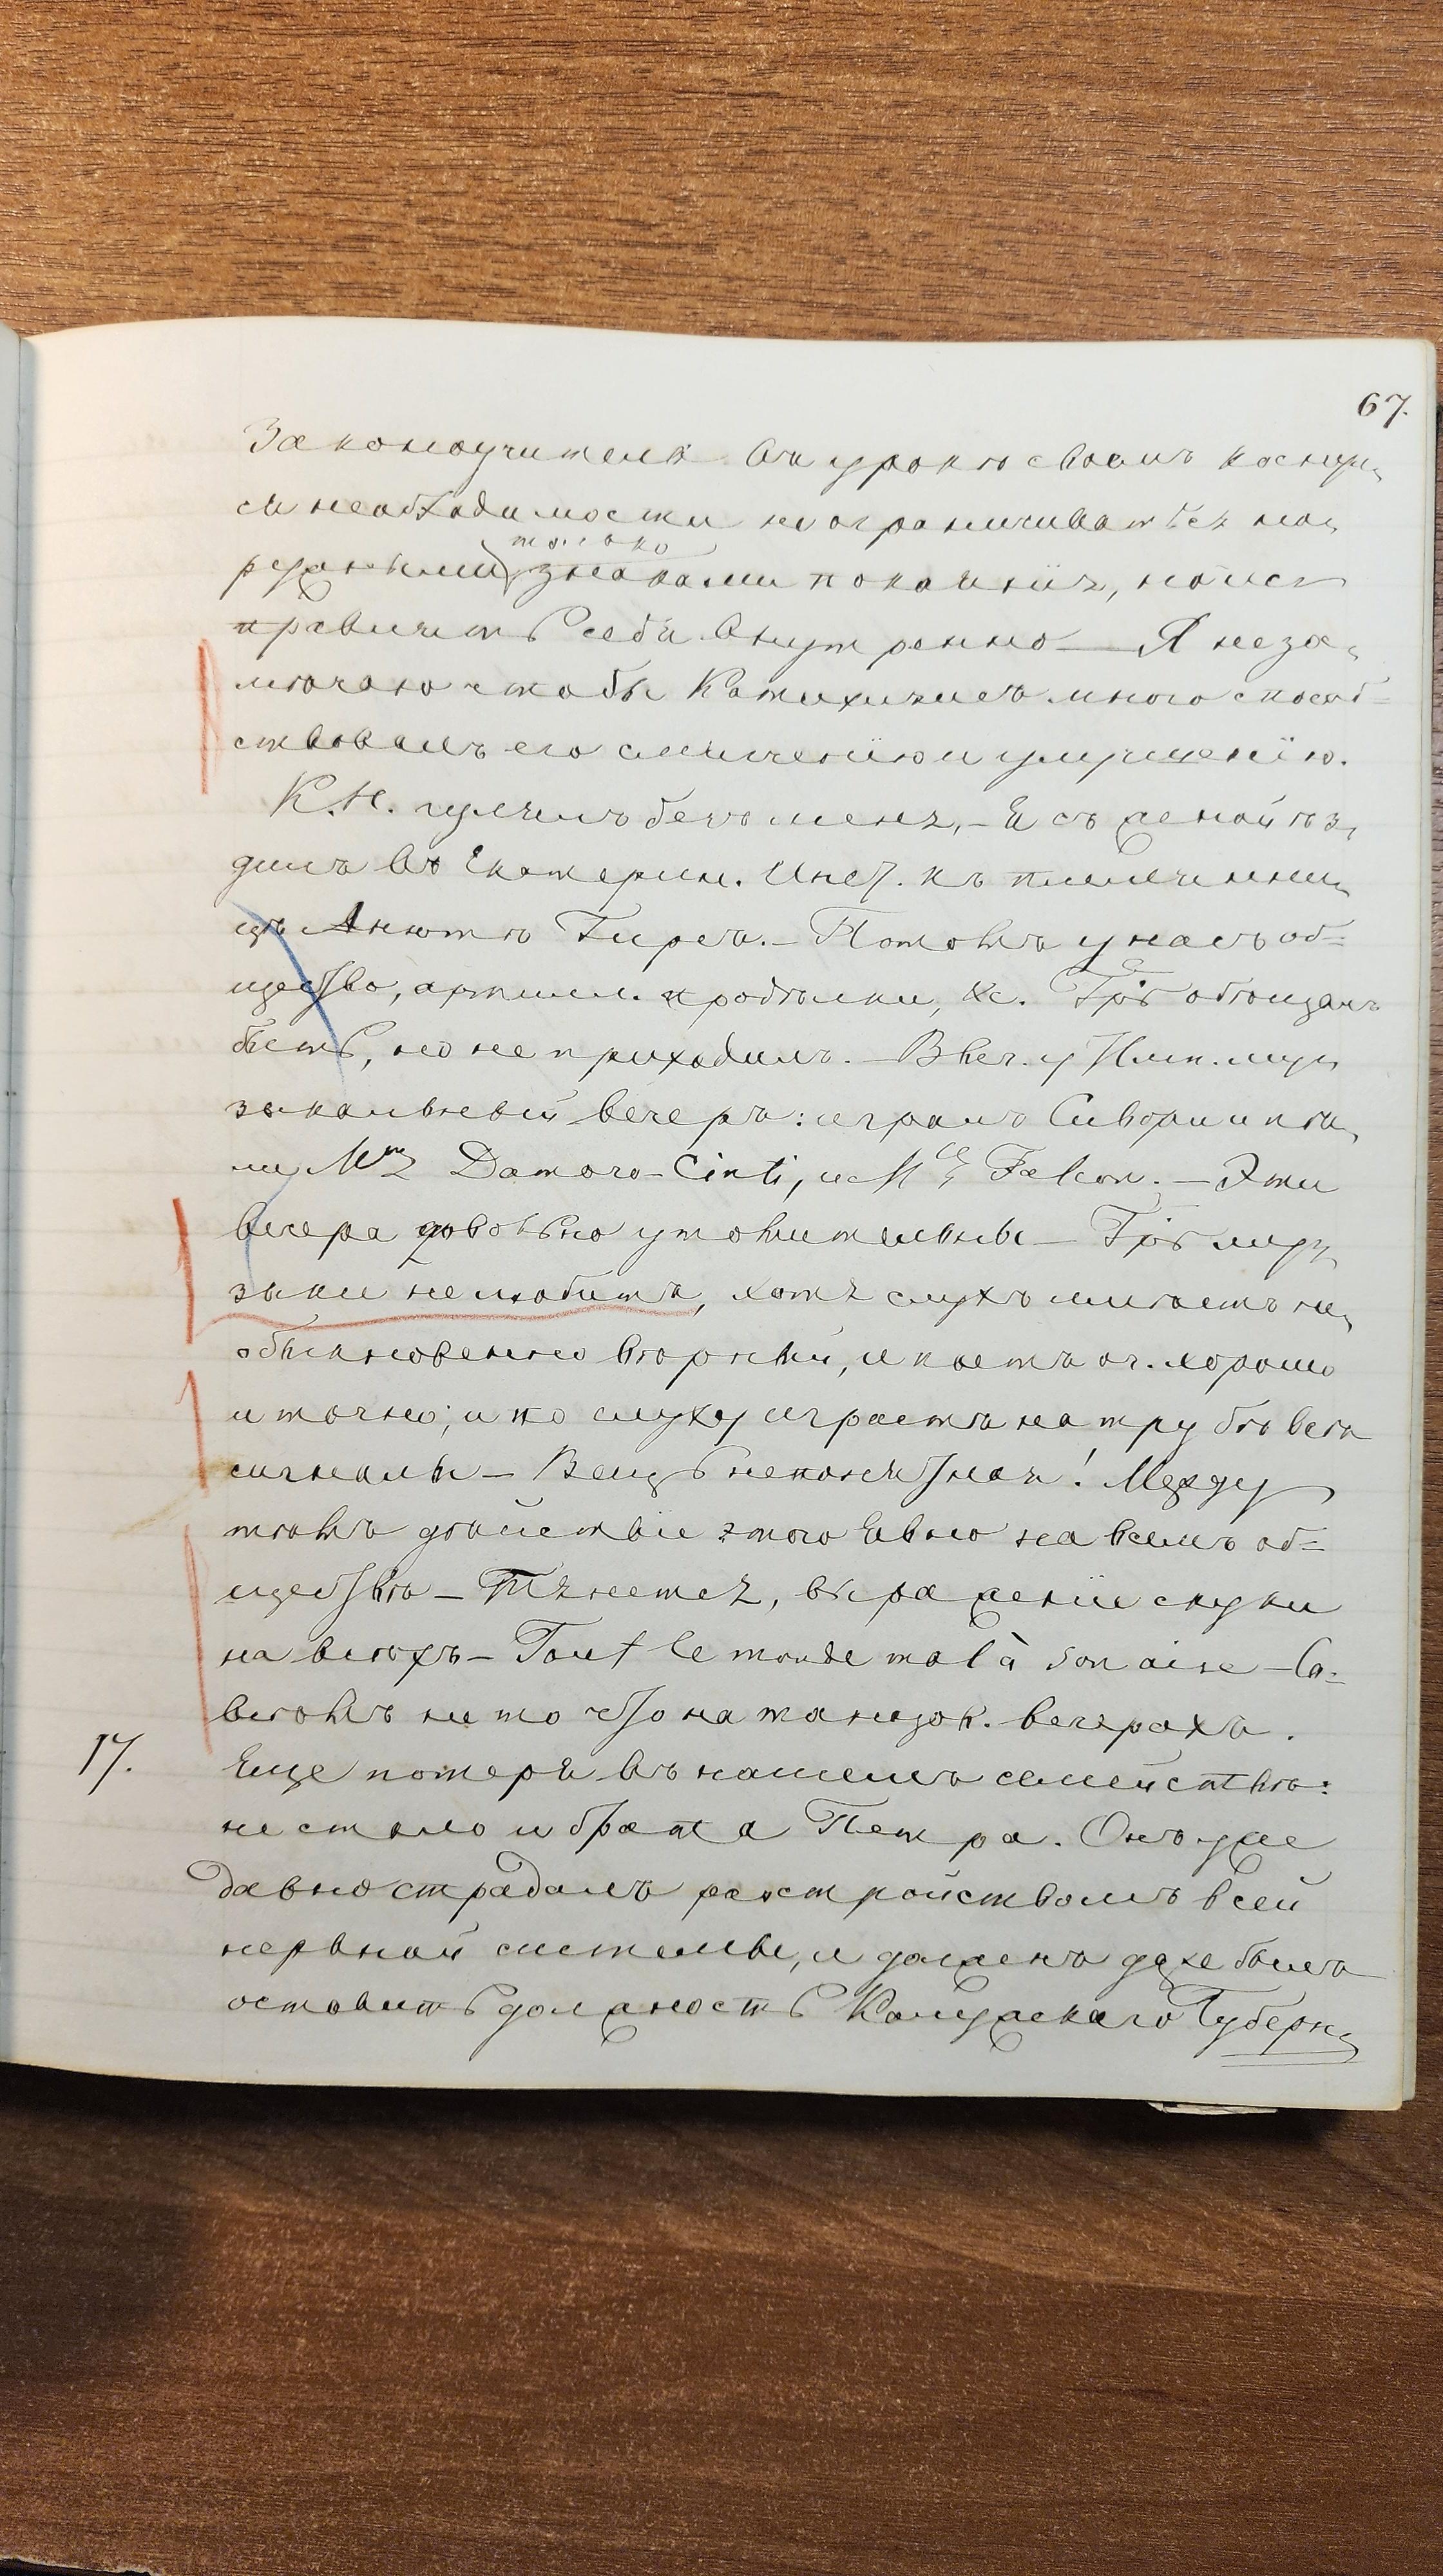 67.
Законоучителя въ урокѣ своемъ коснул-
ся необходимости не ограничиваться на-
только
ружными знаками покаянія, но ис-
правлять себя внутренно — Я не за-
мѣчаю чтобы Катихизисъ много способ=
ствовалъ его смягченію и улучшенію.
К.Н. гулялъ безъ меня, — Я съ женой ѣз-
дилъ въ Екатерин. Инст. къ племянни-
цѣ Анютѣ Гирсъ. — Потомъ у насъ об=
щество, артилл. продѣлки, &c. обѣщалъ
быть, но не приходилъ. — Ввеч. у Имп. му-
зыкальный вечеръ: игралъ Сивори и пѣ-
ли Mme Damoro-Cinti, и Mlle Falcon. — Эти
вечера довольно утомительны — му-
зыки не любитъ, хотя слухъ имѣетъ не-
обыкновенно вѣрный, и поетъ оч. хорошо
и точно; и по слуху играетъ на трубѣ всѣ
сигналы — Вещь непонятная! Между
тѣмъ дѣйствіе этого явно на всемъ об=
ществѣ — Тянется, выраженіе скуки
на всѣхъ — Tout le monde mal à son aise — Со=
всѣмъ не то что на танцов. вечерахъ.
17. Еще потеря въ нашемъ семействѣ:
не стало и брата Петра. Онъ уже
давно страдалъ разстройствомъ всей
нервной системы, и долженъ даже былъ
оставить должность Калужскаго Губерн-